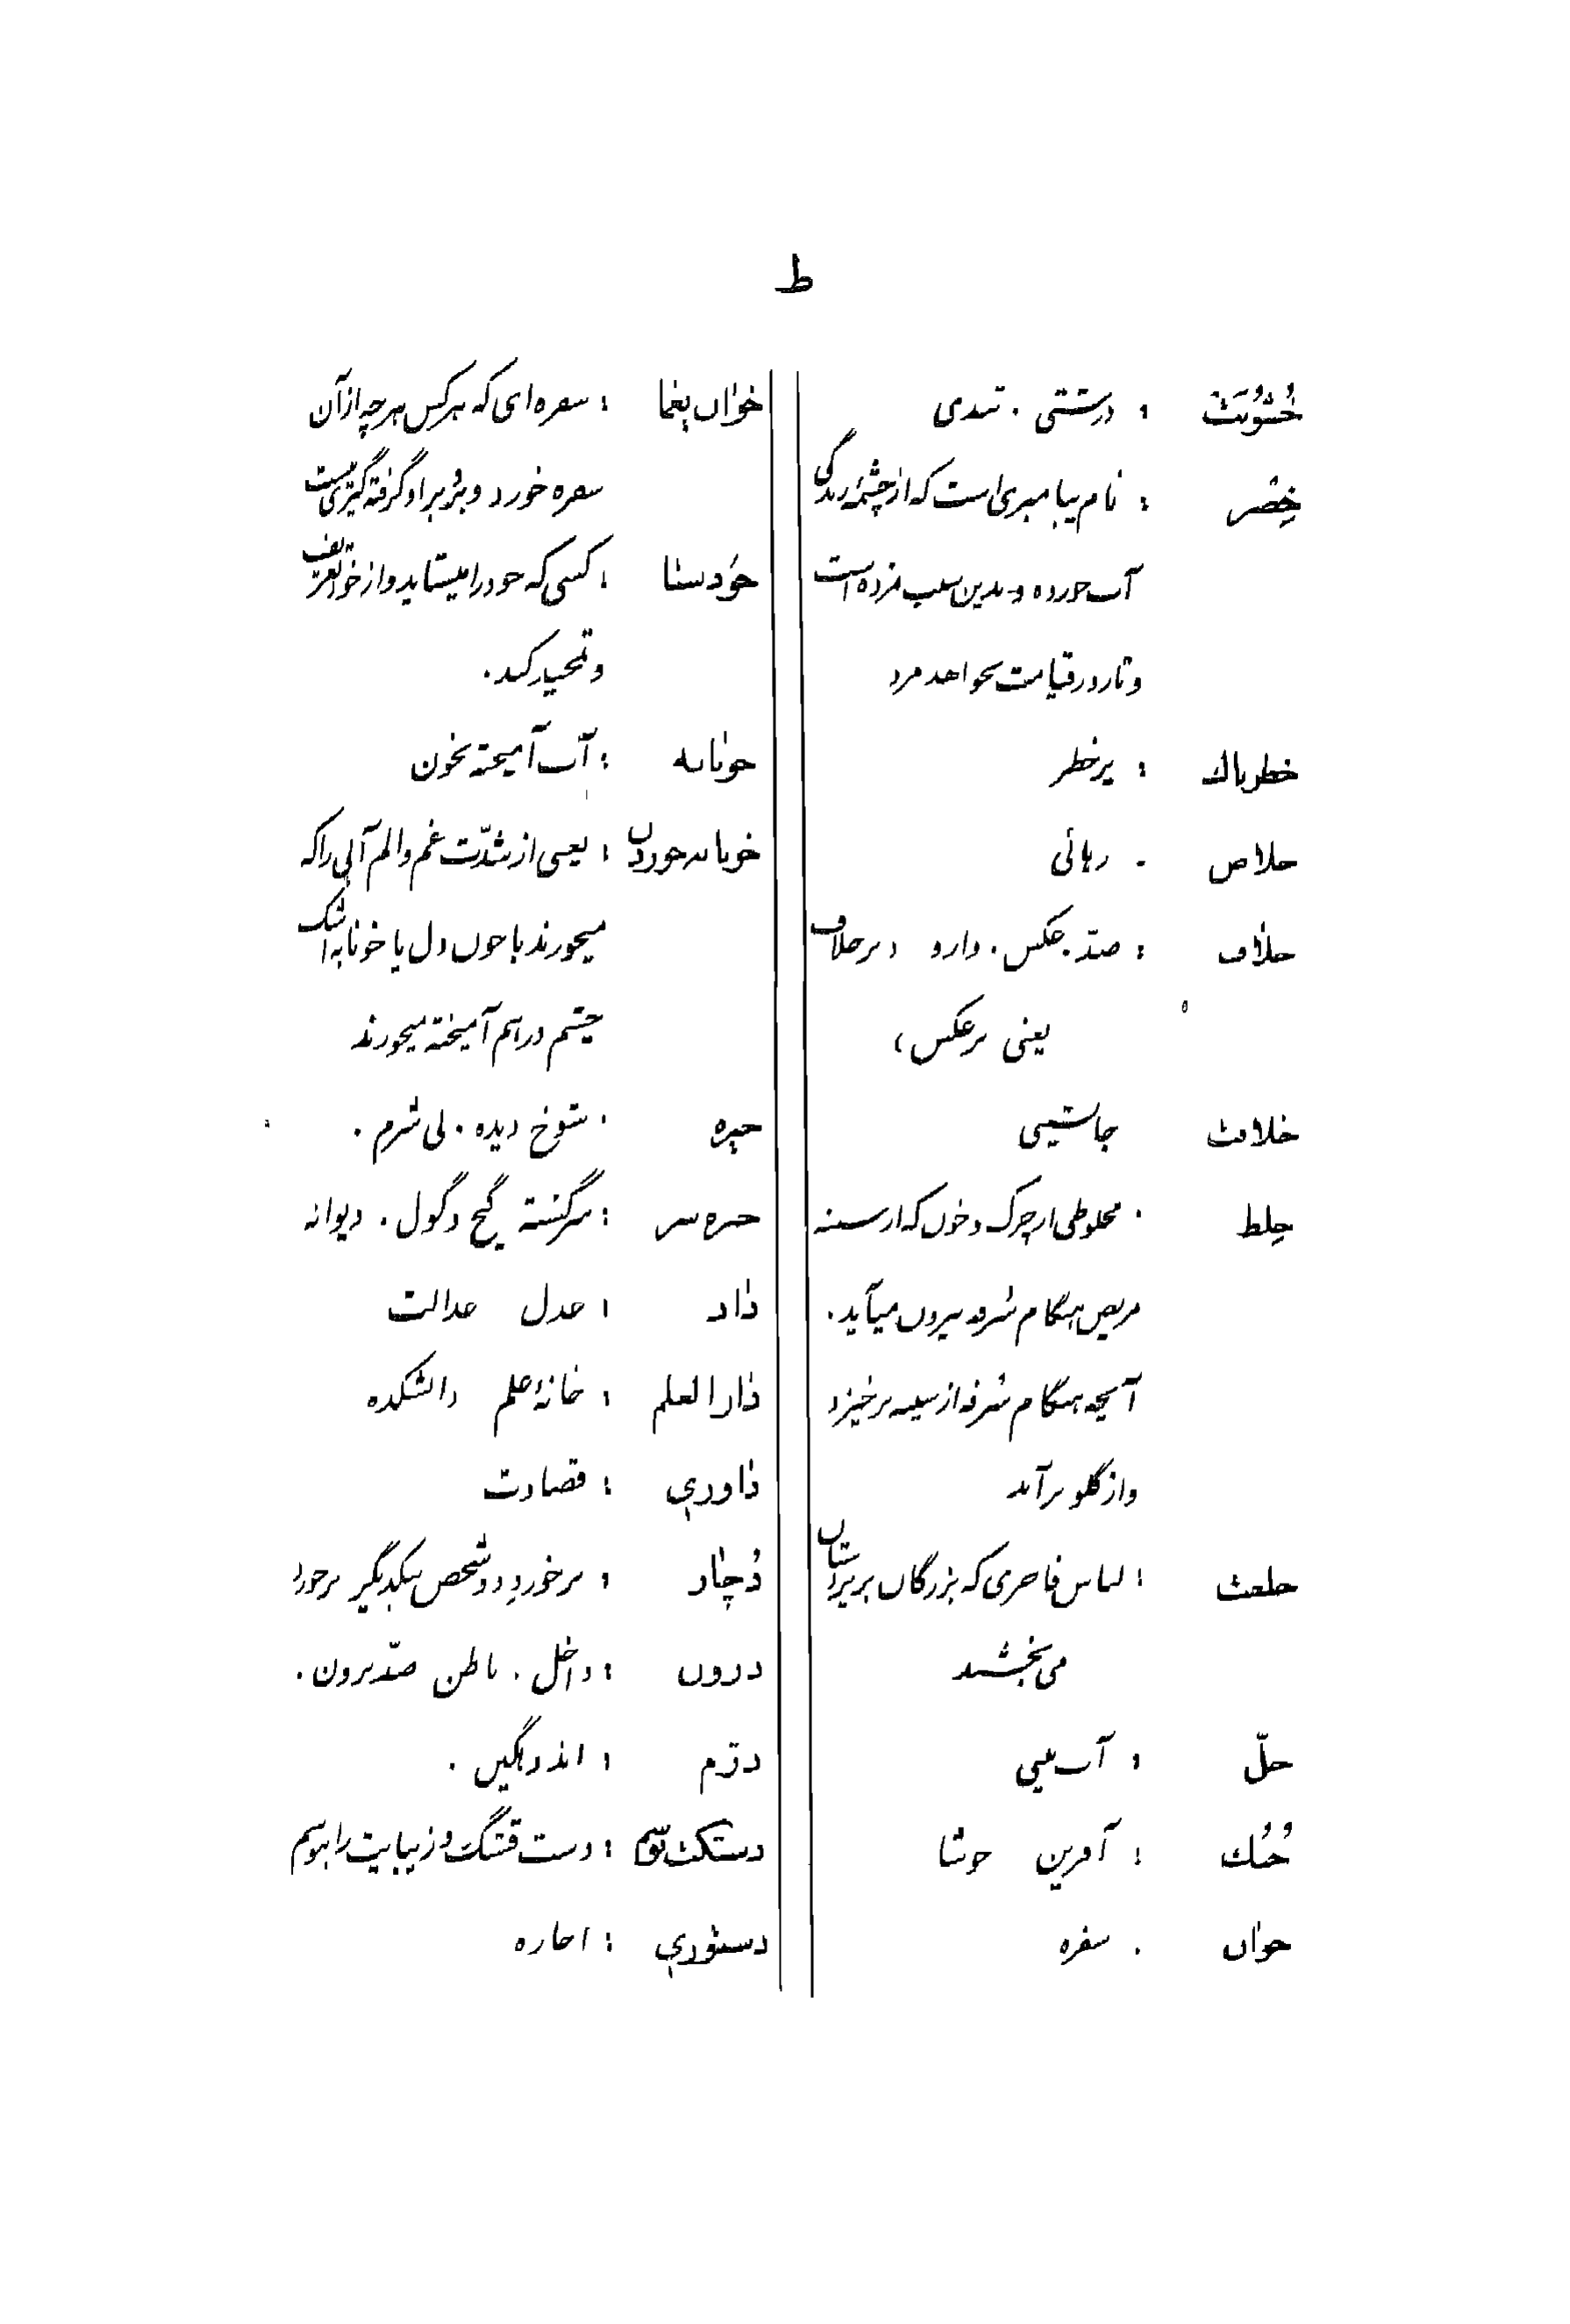 ط
خُشُونَت : درشتی . تندی
خِضر : نام پیامبری است که از چشمهٔ زندگی
آب خورده و بدین سبب نمرده است
و تا روز قیامت نخواهد مرد
خطرناك : پرخطر
خلاص . رهائی
خلاف : ضدّ . عکس . وارو (برخلاف
یعنی برعکس)
خلافت جانشینی
خِلط . مخلوطی از چرک و خون که از سینه
مریض هنگام سُرفه بیرون میآید .
آنچه هنگام سُرفه از سینه برخیزد
و از گلو برآید
خلعت : لباس فاخری که بزرگان بزیردستان
می‌بخشند
خلّ : آب بینی
خُنُك : آفرین خوشا
خوان . سفره
خوان یغما : سفره‌ای که هرکس هرچه از آن
سفره خورد و برد بر او گرفته‌گیری نیست
خودستا : کسی که خود را میستاید و از خود تعریف
و تمجید کند .
خونابه : آب آمیخته بخون
خونابه خوردن : یعنی از شدّت غم و الم آبی را که
میخورند با خون دل یا خونابه اشک
چشم در هم آمیخته میخورند
خیره . شوخ دیده . بی شرم .
خیره سر : سرگشته گیج و گول . دیوانه
داد : عدل عدالت
دارالعلم : خانهٔ علم دانشکده
داوری : قضاوت
دُچار : برخورد دو شخص بیکدیگر برخورد
درون : داخل . باطن ضدّ برون .
دژم : اندوهگین .
دستکت بوسم : دست قشنگ و زیبایت را ببوسم
دستوری : اجازه